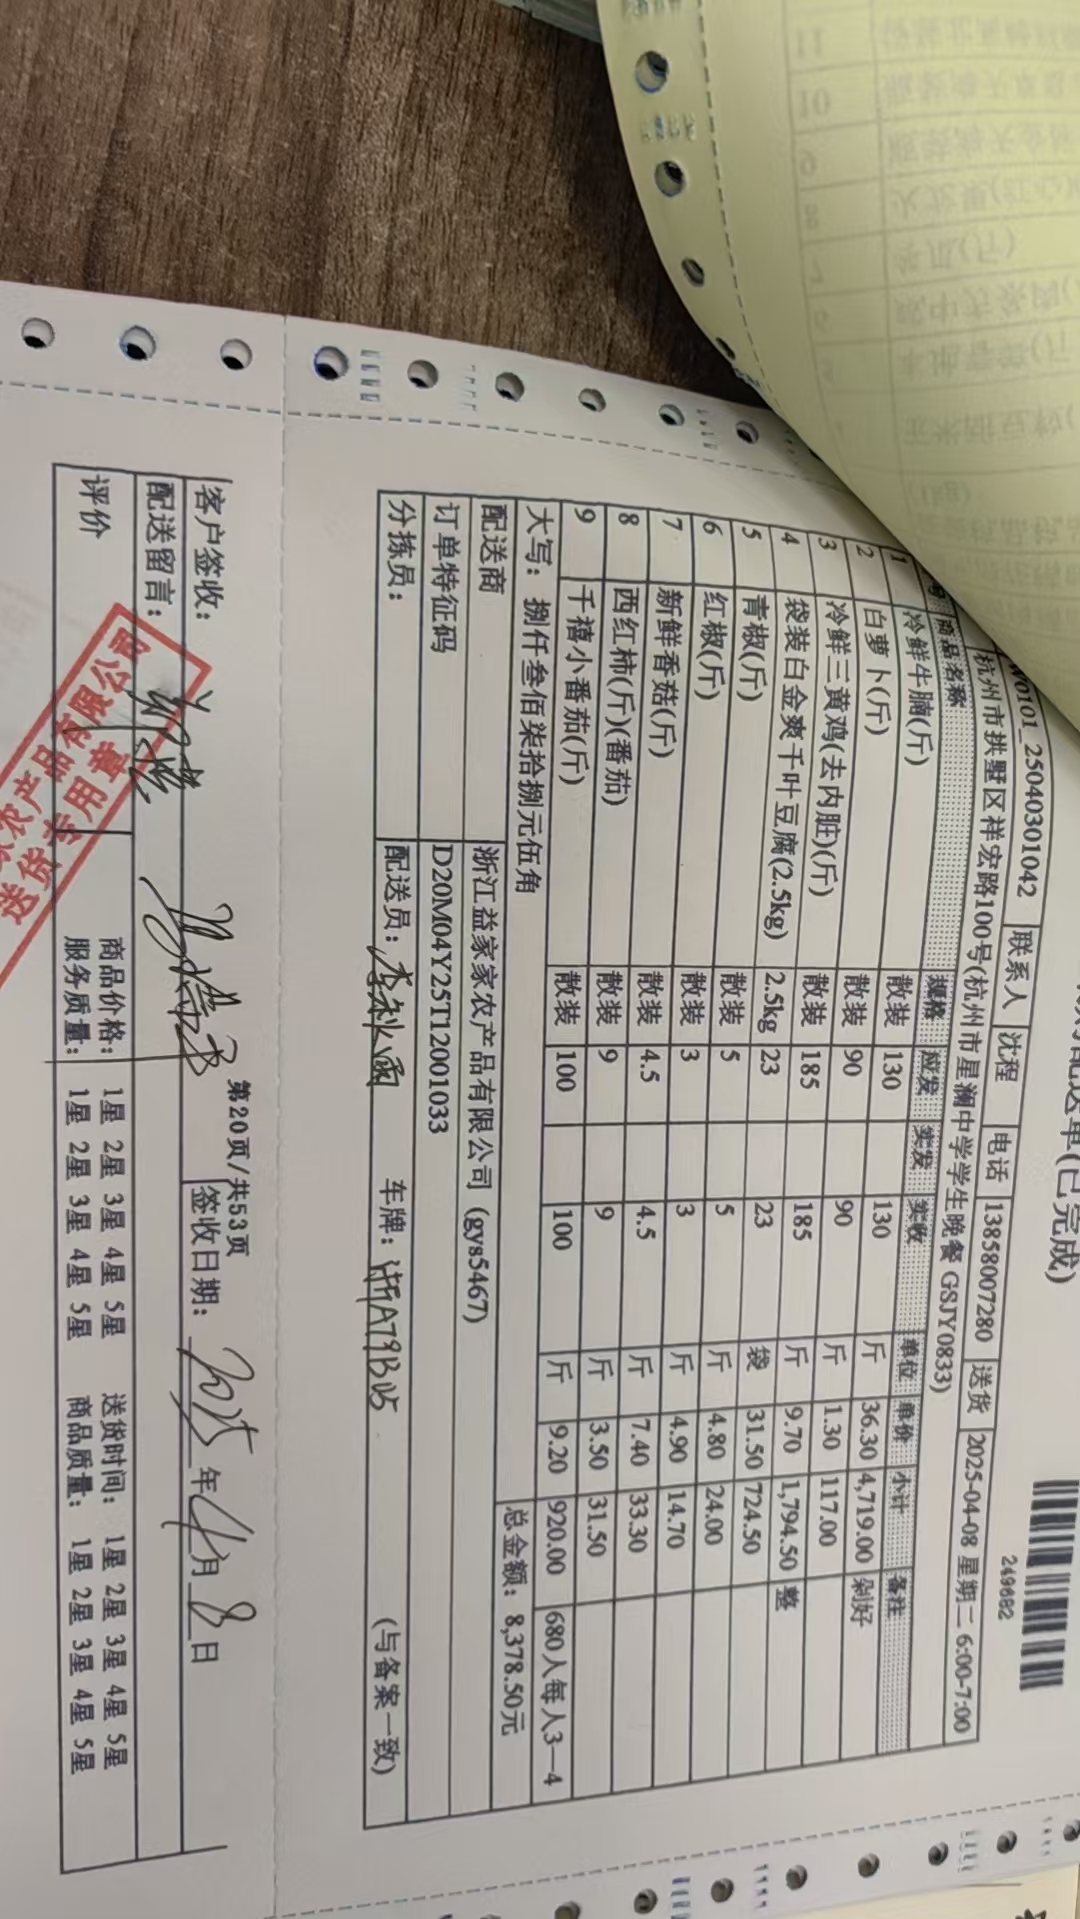 配送单(已完成)
249682
W0101_25040301042 联系人 沈程 电话 13858007280 送货 2025-04-08 星期二 6:00-7:00
杭州市拱墅区祥宏路100号(杭州市星澜中学学生晚餐 GSJY0833)
号 商品名称 规格 应发 实发 实收 单位 单价 小计 备注
1 冷鲜牛腩(斤) 散装 130 130 斤 36.30 4,719.00 剁好
2 白萝卜(斤) 散装 90 90 斤 1.30 117.00
3 冷鲜三黄鸡(去内脏)(斤) 散装 185 185 斤 9.70 1,794.50 整
4 袋装白金爽千叶豆腐(2.5kg) 2.5kg 23 23 袋 31.50 724.50
5 青椒(斤) 散装 5 5 斤 4.80 24.00
6 红椒(斤) 散装 3 3 斤 4.90 14.70
7 新鲜香菇(斤) 散装 4.5 4.5 斤 7.40 33.30
8 西红柿(斤)(番茄) 散装 9 9 斤 3.50 31.50
9 千禧小番茄(斤) 散装 100 100 斤 9.20 920.00 680人每人3—4
大写：捌仟叁佰柒拾捌元伍角 总金额：8,378.50元
配送商 浙江益家家农产品有限公司 (gys5467)
订单特征码 D20M04Y25T12001033
分拣员： 配送员：李秋雨 车牌：浙A79B05 (与备案一致)
第20页/共53页
客户签收： 签收日期：2025年4月8日
配送留言：
评价 商品价格：1星 2星 3星 4星 5星 送货时间：1星 2星 3星 4星 5星
服务质量：1星 2星 3星 4星 5星 商品质量：1星 2星 3星 4星 5星
农产品有限公司
送货专用章